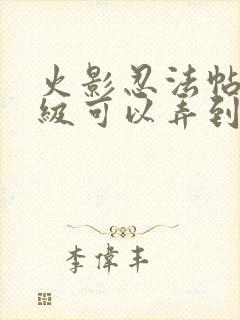 火影忍法帖
級可以弄到
李偉丰